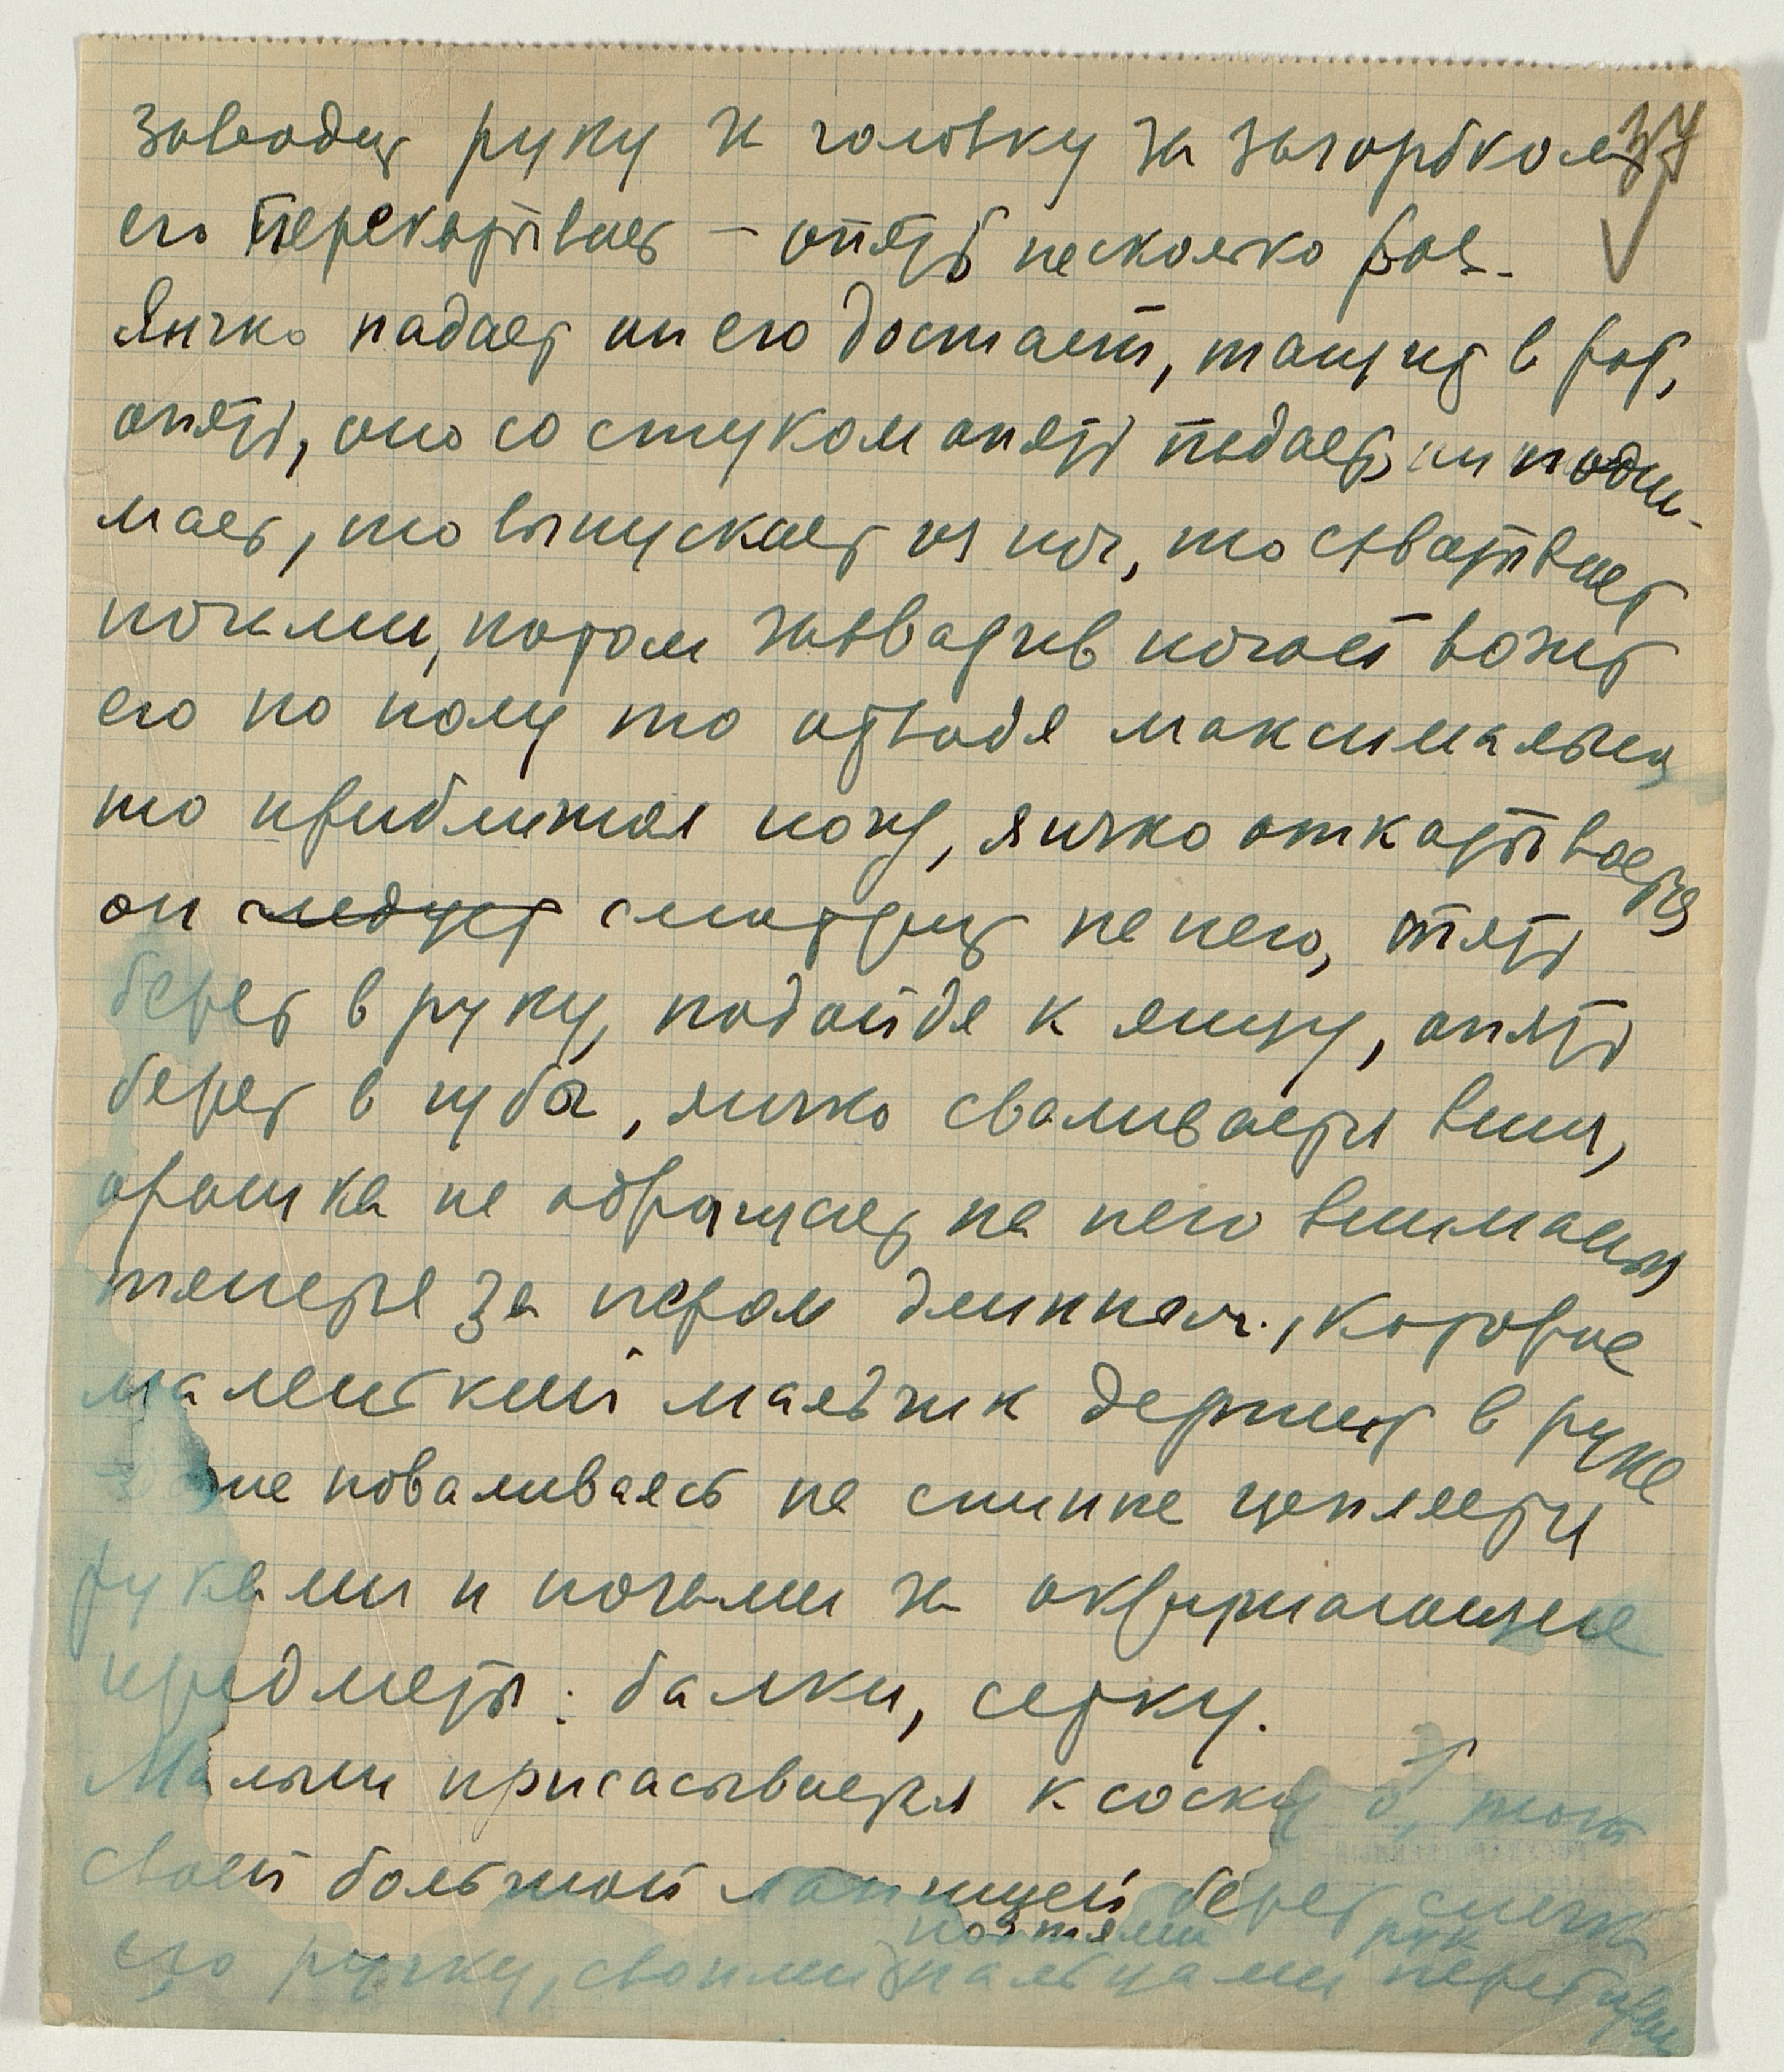 37
заводит руку и головку за загорбком
его перекатывает – опять несколько раз.
Яичко падает он его достает, тащит в рот,
опять, оно со стуком опять падает, он подни-
мает, то выпускает из ног, то схватывает
ногими, потом захватив ногой возит
его по полу то отводя максимально,
то приближая ногу, яичко откатывается
он следует смотрит на него, опять
берет в руку, подойдя к ящику, опять
берет в губы, яичко сваливается вниз,
орашка не обращает на него внимания
теперь за пером длинным, которые
маленький мальчик держит в руке
даже поваливаясь на спинке цепляется
руками и ногами за окружающие
предметы: балки, сетку.
Малыш присасывается к соску ♂, тот
своей большой лапищей берет слегка
его ручку, своими пальцами
ногтями рук